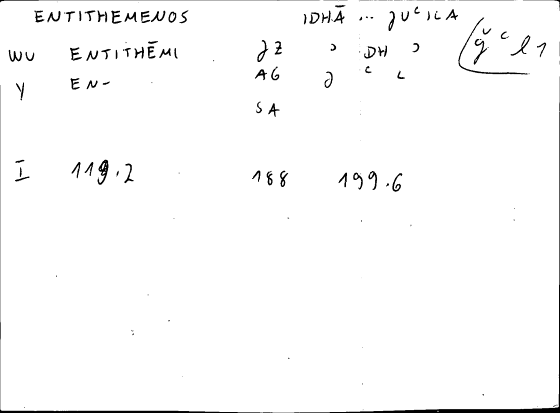 ENTITHEMENOS IDHĀ ... ʒUᶜILA
WU ENTITHĒMI ʒZ ᵓ DH ᵓ ğᶜl1
Y EN- AG ʒ ᶜ L
SA
I 119.2 188 199.6